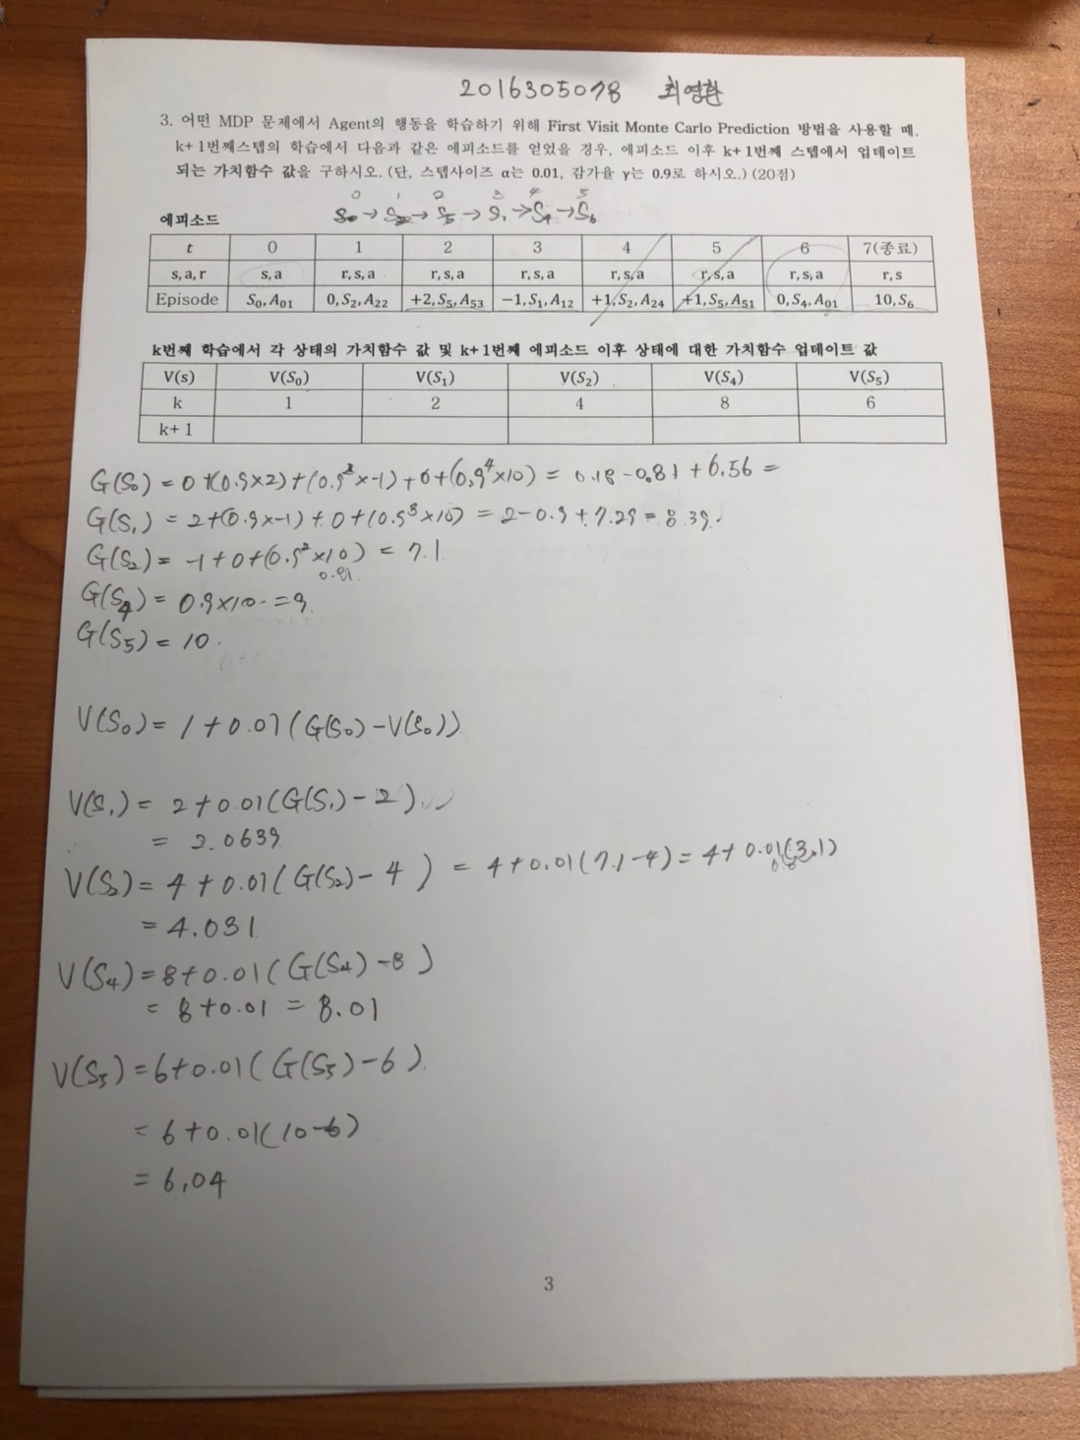 2016305078 최영환
3. 어떤 MDP 문제에서 Agent의 행동을 학습하기 위해 First Visit Monte Carlo Prediction 방법을 사용할 때,
k+1번째스텝의 학습에서 다음과 같은 에피소드를 얻었을 경우, 에피소드 이후 k+1번째 스텝에서 업데이트
되는 가치함수 값을 구하시오. (단, 스텝사이즈 α는 0.01, 감가율 γ는 0.9로 하시오.) (20점)
0 1 2 3 4 5
에피소드 S₀→S₂→S₅→S₁→S₄→S₆
t 0 1 2 3 4 5 6 7(종료)
s, a, r s, a r, s, a r, s, a r, s, a r, s, a r, s, a r, s, a r, s
Episode S₀, A₀₁ 0, S₂, A₂₂ +2, S₅, A₅₃ −1, S₁, A₁₂ +1, S₂, A₂₄ +1, S₅, A₅₁ 0, S₄, A₀₁ 10, S₆
k번째 학습에서 각 상태의 가치함수 값 및 k+1번째 에피소드 이후 상태에 대한 가치함수 업데이트 값
V(s) V(S₀) V(S₁) V(S₂) V(S₄) V(S₅)
k 1 2 4 8 6
k+1
G(S₀) = 0+(0.9×2)+(0.9²×-1)+0+(0.9⁴×10) = 0.18-0.81+6.56 =
G(S₁) = 2+(0.9×-1)+0+(0.9³×10) = 2-0.9+7.29=8.39.
G(S₂)= -1+0+(0.9²×10) = 7.1
0.81.
G(S₄)= 0.9×10 =9.
G(S₅)= 10.
V(S₀)= 1+0.01(G(S₀)-V(S₀))
V(S₁)= 2+0.01(G(S₁)-2)
= 2.0639
V(S₂)= 4+0.01(G(S₂)-4) = 4+0.01(7.1-4)=4+0.01(3.1)
= 4.031
V(S₄)=8+0.01(G(S₄)-8)
= 8+0.01 = 8.01
V(S₅)=6+0.01(G(S₅)-6).
= 6+0.01(10-6)
= 6.04
3